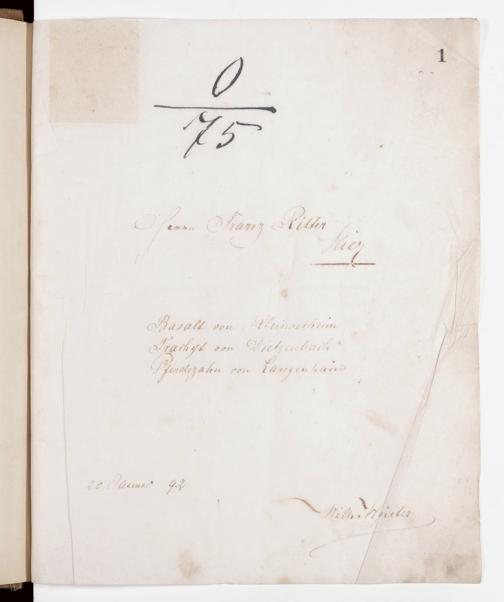 1
0
75
Herrn Franz Ritter
hier
Basalt von Kleinostheim
Trachyt von Dietzenbach
Pferdezahn von Langenhain
20. Januar 92